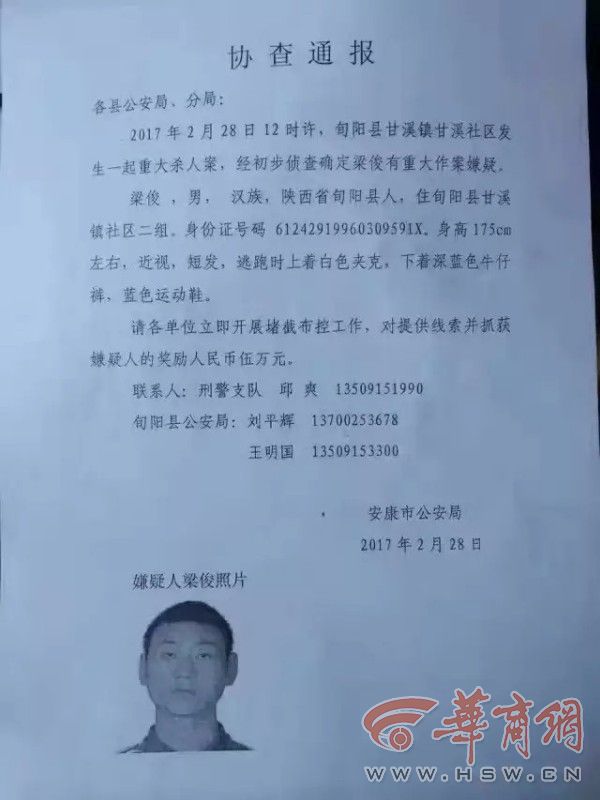 协查通报
各县公安局、分局：
2017年2月28日12时许，旬阳县甘溪镇甘溪社区发
生一起重大杀人案，经初步侦查确定梁俊有重大作案嫌疑。
梁俊，男，汉族，陕西省旬阳县人，住旬阳县甘溪
镇社区二组。身份证号码 61242919960309591X。身高175cm
左右，近视，短发，逃跑时上着白色夹克，下着深蓝色牛仔
裤，蓝色运动鞋。
请各单位立即开展堵截布控工作，对提供线索并抓获
嫌疑人的奖励人民币伍万元。
联系人：刑警支队 邱 爽 13509151990
旬阳县公安局：刘平辉 13700253678
王明国 13509153300
安康市公安局
2017年2月28日
嫌疑人梁俊照片
華商網
WWW.HSW.CN